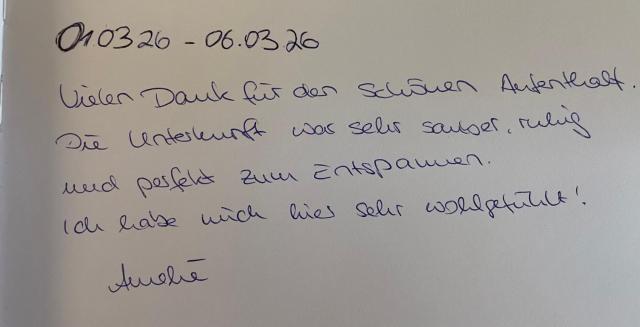 01.03.26 - 06.03.26
Vielen Dank für den schönen Aufenthalt.
Die Unterkunft war sehr sauber, ruhig
und perfekt zum Entspannen.
Ich habe mich hier sehr wohlgefühlt!
Amelie